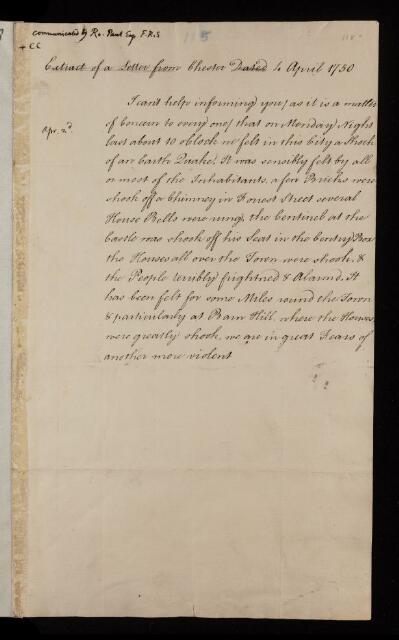 communicated by Ro. Paul Esq F.R.S
115
+ CC
Extract of a Letter from Chester Dated 4 April 1750
I can't help informing you, as it is a matter
of Concern to every one, that on Monday Night
Apr. 2d.
last about 10 oClock we felt in this City a Shock
of an Earth Quake, It was sensibly felt by all
or most of the Inhabitants, a few Bricks were
shook off a Chimney in Forrest Street several
House Bells were rung, the Centinel at the
Castle was shook off his Seat in the Centry Box
the Houses all over the Town were shook, &
the People terribly frightned & Alarmd. It
has been felt for some Miles round the Town
& particularly at Ram Hill, where the Houses
were greatly shook, we are in great Fears of
another more violent